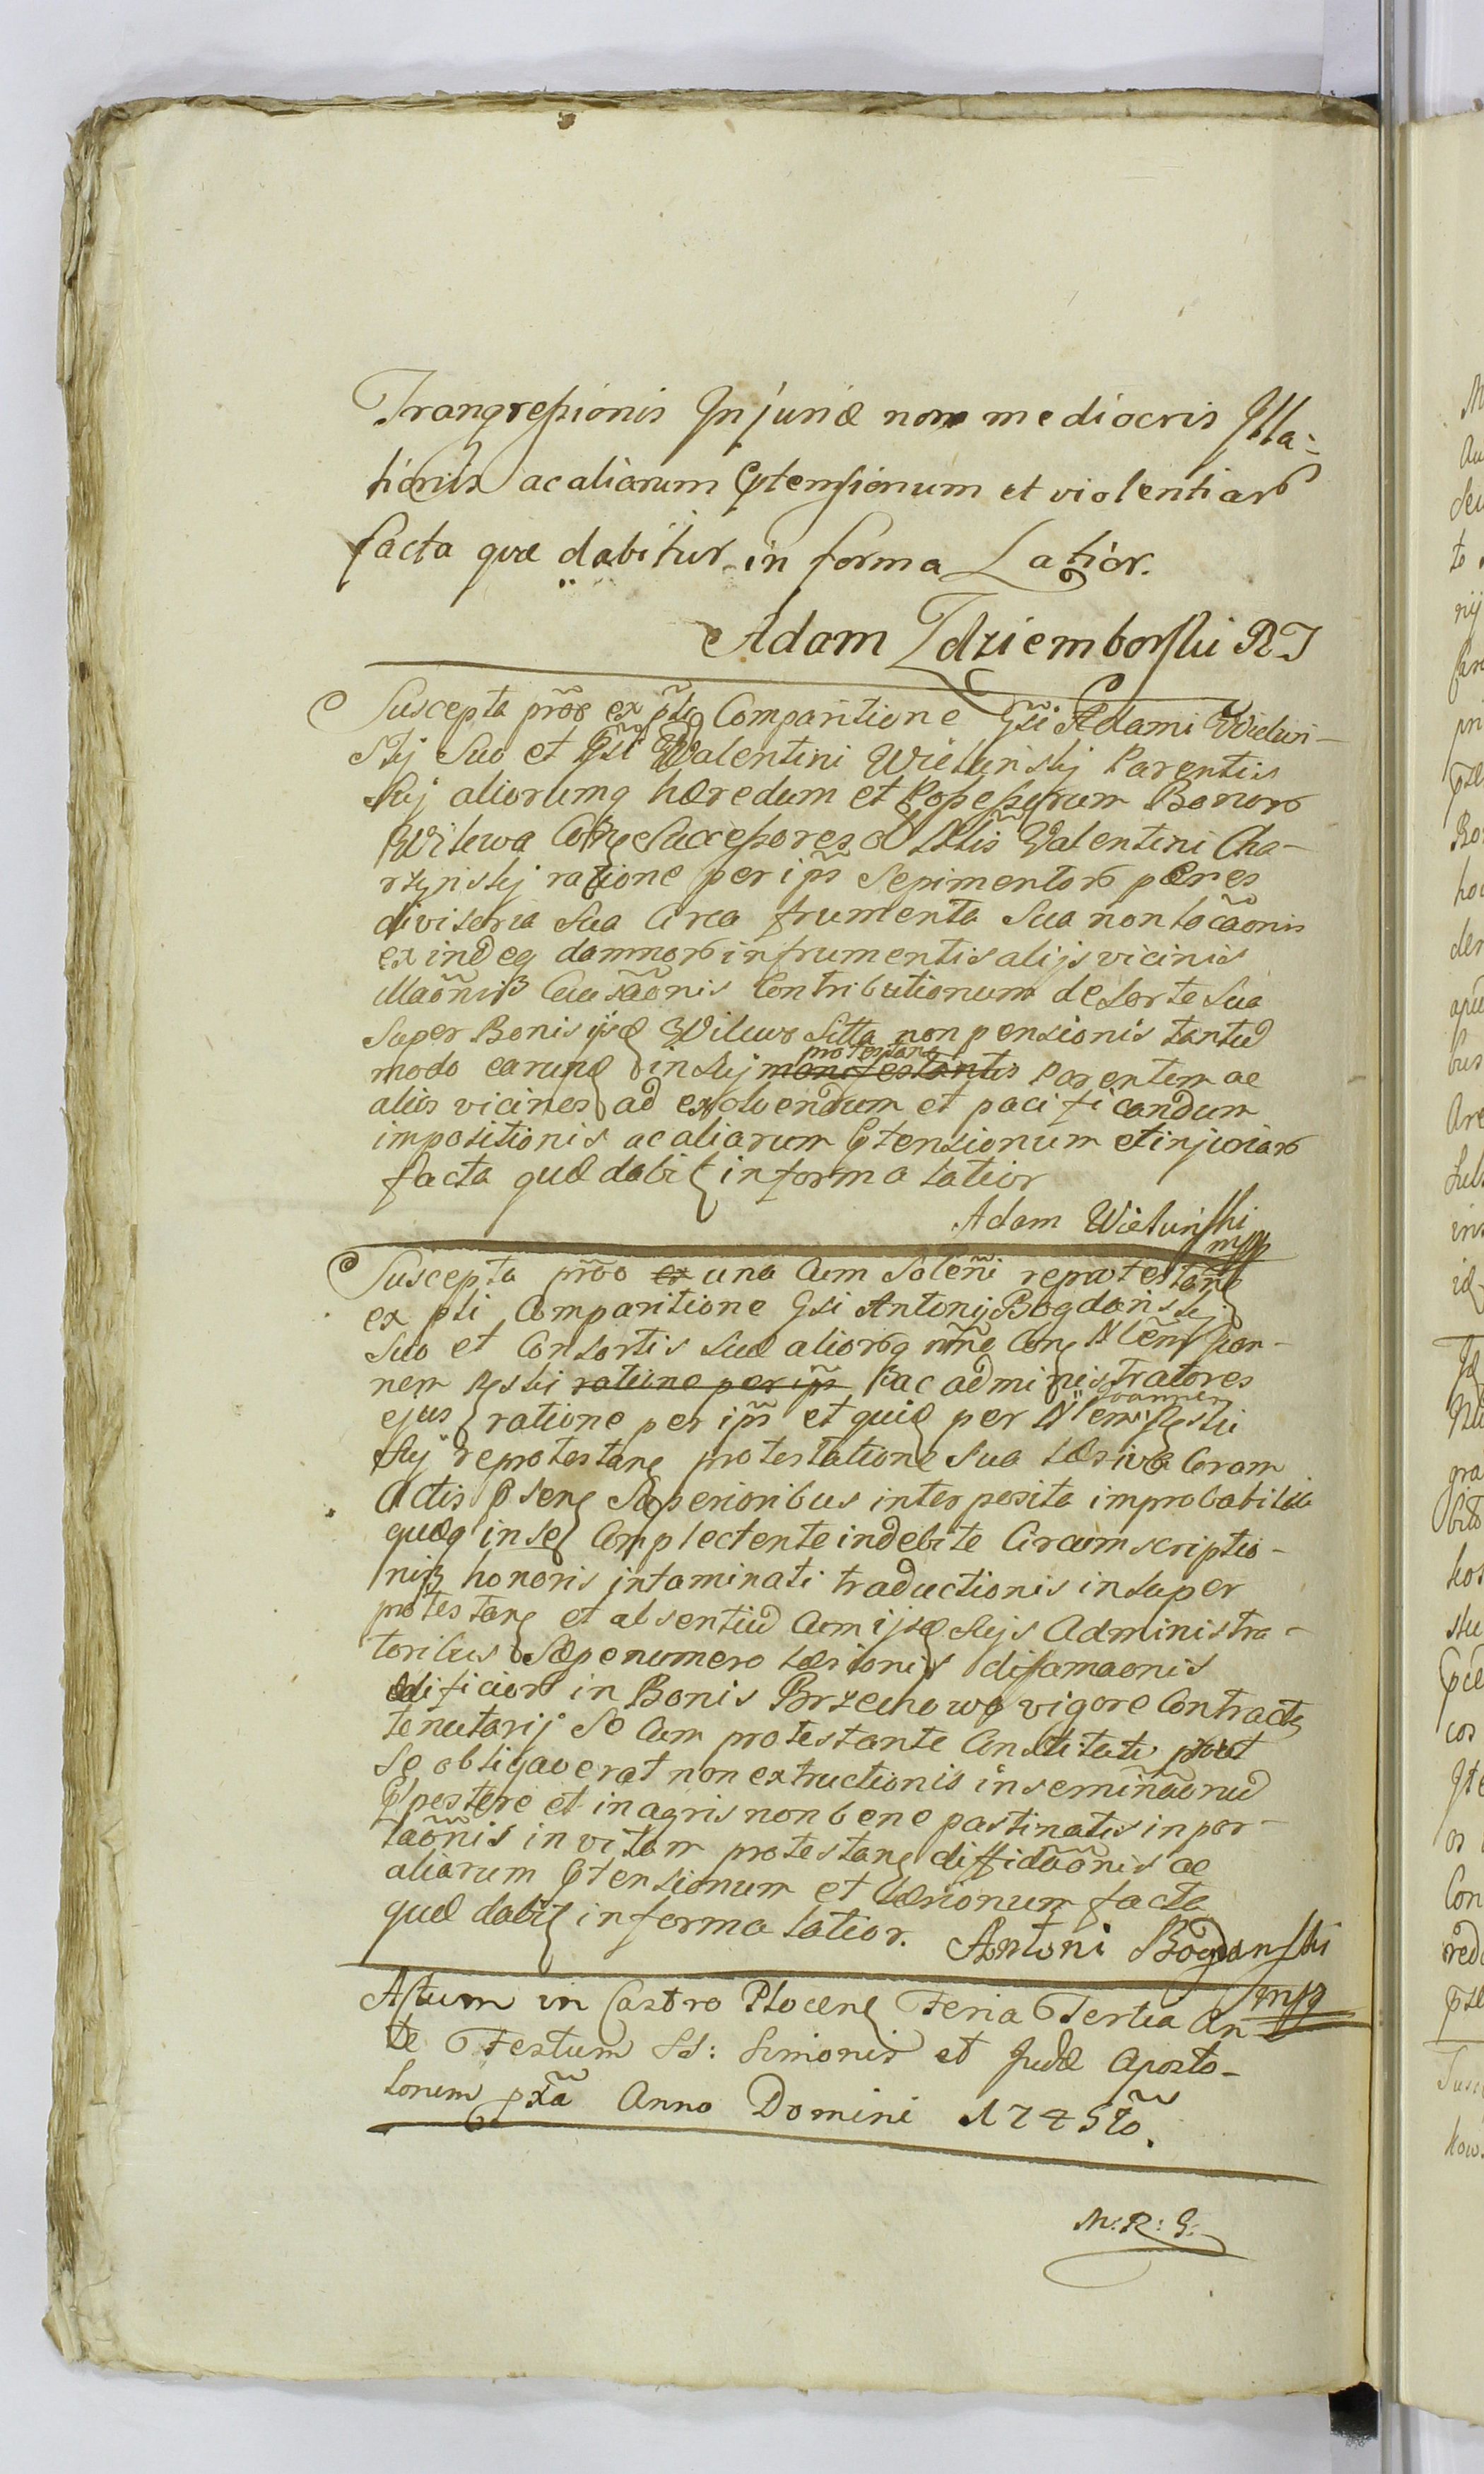 Trangressionis Injuriæ non mediocris Illa:
tionis ac aliarum Ptensionum et violentiar
facta quæ dabitur in forma Latior.
Adam Zdziemborski RJ
Suscepta prõõ ex pti Comparitione Gsi Adami Wieluń-
skij suo et Gsi Walentini Wieluńskij Parentis
skij aliorumq hæredum et Possessorum Bonor
Wilewa Successores Valentini Cha-
rzynskij ratione per ips̃ Sepimentor penes
divisoria sua Circa frumenta sua non locãonis
ex indeq damnor in frumentis alijs vicinis
Causãonis Contributionum de sorte sua
super Bonis non pensionis tantũ
modo earund in skij manifestantis protestan Parentem ac
alios vicinos ad exolvendum et pacificandum
impositionis ac aliarum Ptensionum et injuriar
facta quæ dabit in forma latior
Adam Wieluński
mpp
Suscepta prõõ ex una cum Soleñi reprotestãne
ex pti Comparitione Gsi Antonij Bogdańskij
suo et Consortis suæ aliorq nñe
ratione per ips̃ ac administratores
ejus ratione per ips̃ et quid per Joannem
skij reprotestan protestatione sua læsiva Coram
Actis Psen Superioribus interposita improbabilia
quæq in se Complectente indebite Circumscriptio-
nis honoris intaminati traductionis insuper
protestan et absentiũ cum skijs Administra-
toribus sæpenumero læsionis difamaonis
ædificior in Bonis Brzechowo vigore Contractus
tenutarij se cum protestante Constituti prout
se obligaverat non extructionis inseminãonũ
Ppostere et in agris non bene pastinatis in por-
tãõnis in vitam protestan diffidãõnis ac
aliarum Ptensionum et Læsionum facta
quæ dabit in forma latior. Antoni Bogdanski
mpp
Actum in Castro Plocen Feria Tertia An
te Festum SS: Simonis et Judæ Aposto-
lorum pxã Anno Domini 1745to.
M: R: G: